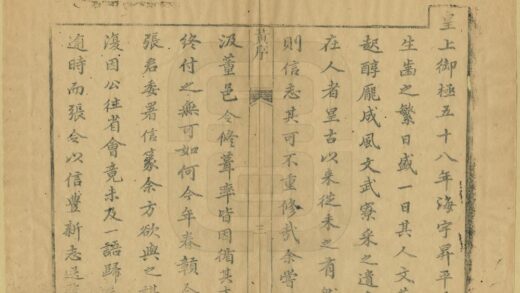 皇上御極五十八年海宇昇平
生齒之繁日盛一日其人文
起醇龐成風文武寮寀之遺
在人者亘古以來從未之有
則信志其可不重修哉余嘗
黃序
三
汲董邑令修葺率皆因循其
終付之無可如何今年春贛
張君委署信篆余方欲與之
復因公往省會竟未及一語歸
逾時而張令以信豐新志